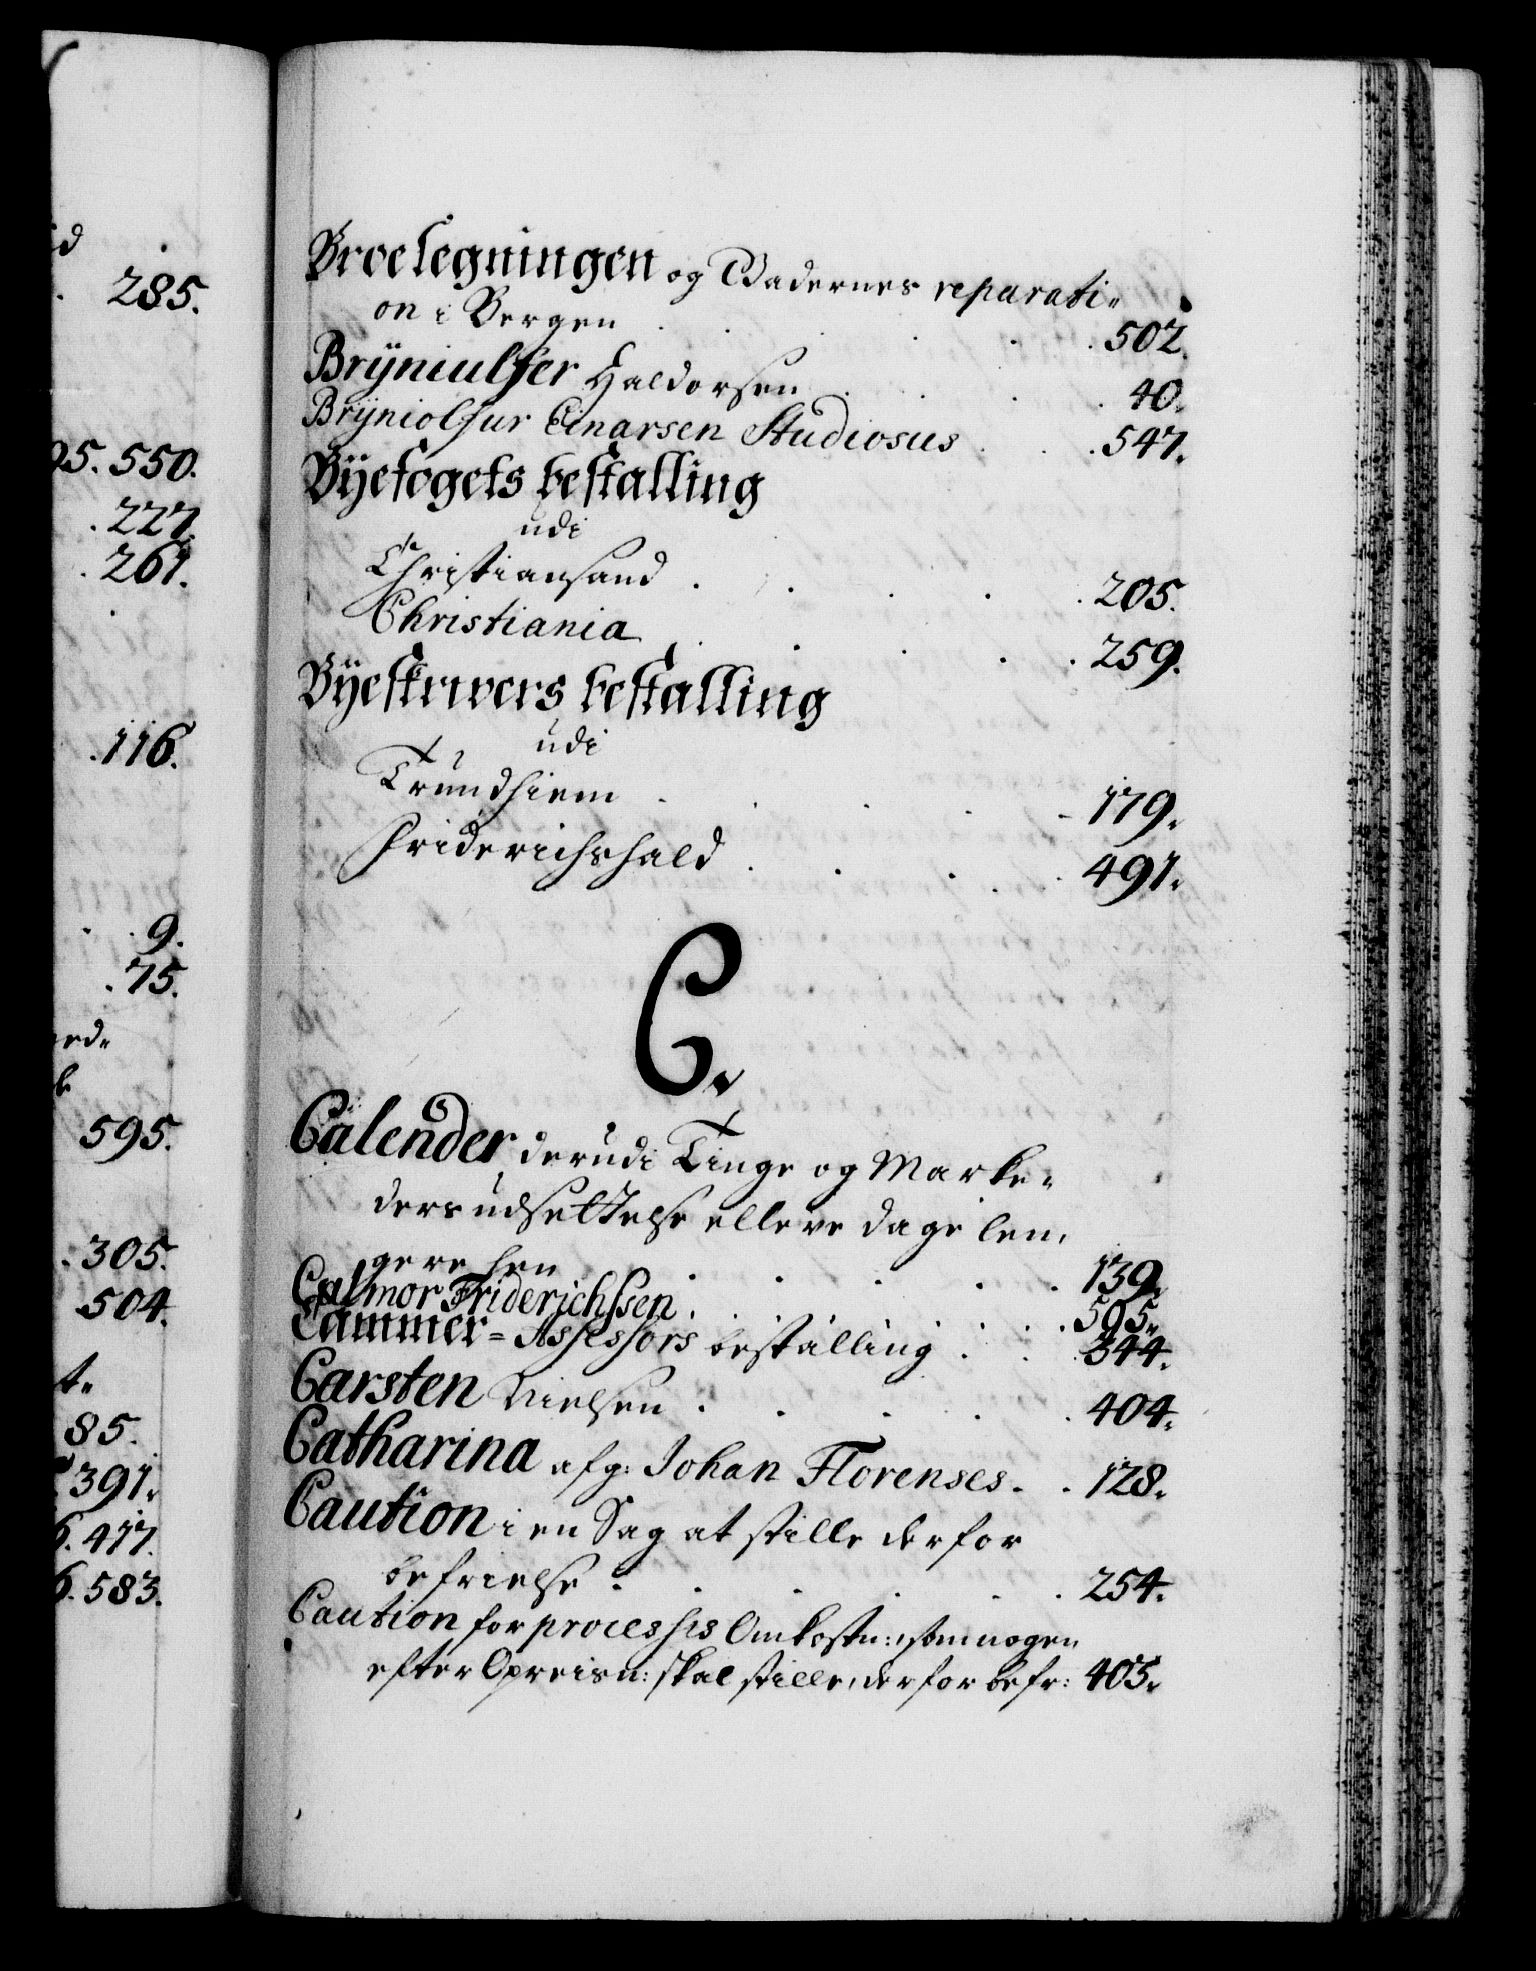 285.
95. 550.
227.
261.
116.
9.
75.
595.
305.
504.
85.
391.
6. 417.
6. 583.
Broelegningen og Gadernes reparati-
on i Bergen . . . . 502.
Brÿniulfer Haldorsen . . . . 40.
Brÿniolfur Einarsen Studiosus . . . 547.
Bÿefogets bestalling
udi
Christiansand . . . . . 205.
Christiania . . . . . 259.
Bÿeskrivers bestalling
udi
Trundhiem . . . . . 179.
Friderichshald . . . . . 491.
C.
Calender derudi Tinge og Marke-
ders udsettelse elleve dage len-
gere hen . . . . . 139.
Calmor Friderichssen . . . . . 595.
Cammer-Assessors bestalling . . . 344.
Carsten Nielsen . . . . . 404.
Catharina afg: Johan Florenses . . 128.
Caution i en Sag at stille derfor
befrielse . . . . . 254.
Caution for processes Omkostn: som nogen
efter Opreisn: skal stille, derfor befr: 405.